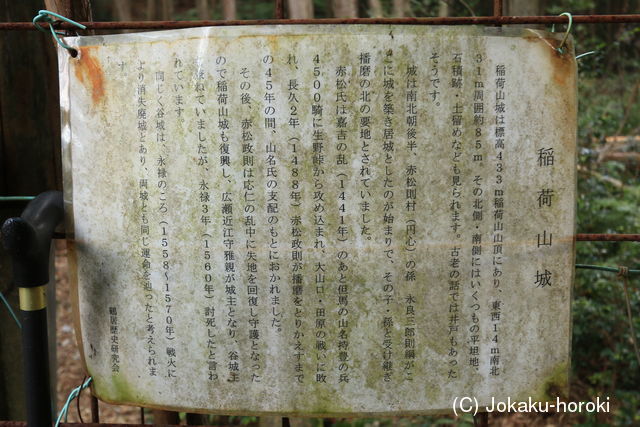 稲荷山城
稲荷山城は標高433m稲荷山山頂にあり、東西14m南北
31m周囲約85m。その北側・南側にはいくつもの平坦地、
石積跡・土留めなども見られます。古老の話では井戸もあった
そうです。
城は南北朝後半、赤松則村（円心）の孫 永良三郎則綱がこ
こに城を築き居城としたのが始まりで、その子・孫と受け継ぎ
播磨の北の要地とされていました。
赤松氏は嘉吉の乱（1441年）のあと但馬の山名持豊の兵
4500騎に生野峠から攻め込まれ、大山口・田原の戦いに敗
れ、長久2年（1488年）赤松政則が播磨をとりかえすまで
の45年の間、山名氏の支配のもとにおかれました。
その後、赤松政則は応仁の乱中に失地を回復し守護となった
ので稲荷山城も復興し、広瀬近江守雅親が城主となり、谷城主
も兼ねていましたが、永禄3年（1560年）討死したと言わ
れています。
同じく谷城は、永禄のころ（1558～1570年）戦火に
より消失廃城とあり、両城とも同じ運命を辿ったと考えられま
す。
鶴居歴史研究会
(C) Jokaku-horoku